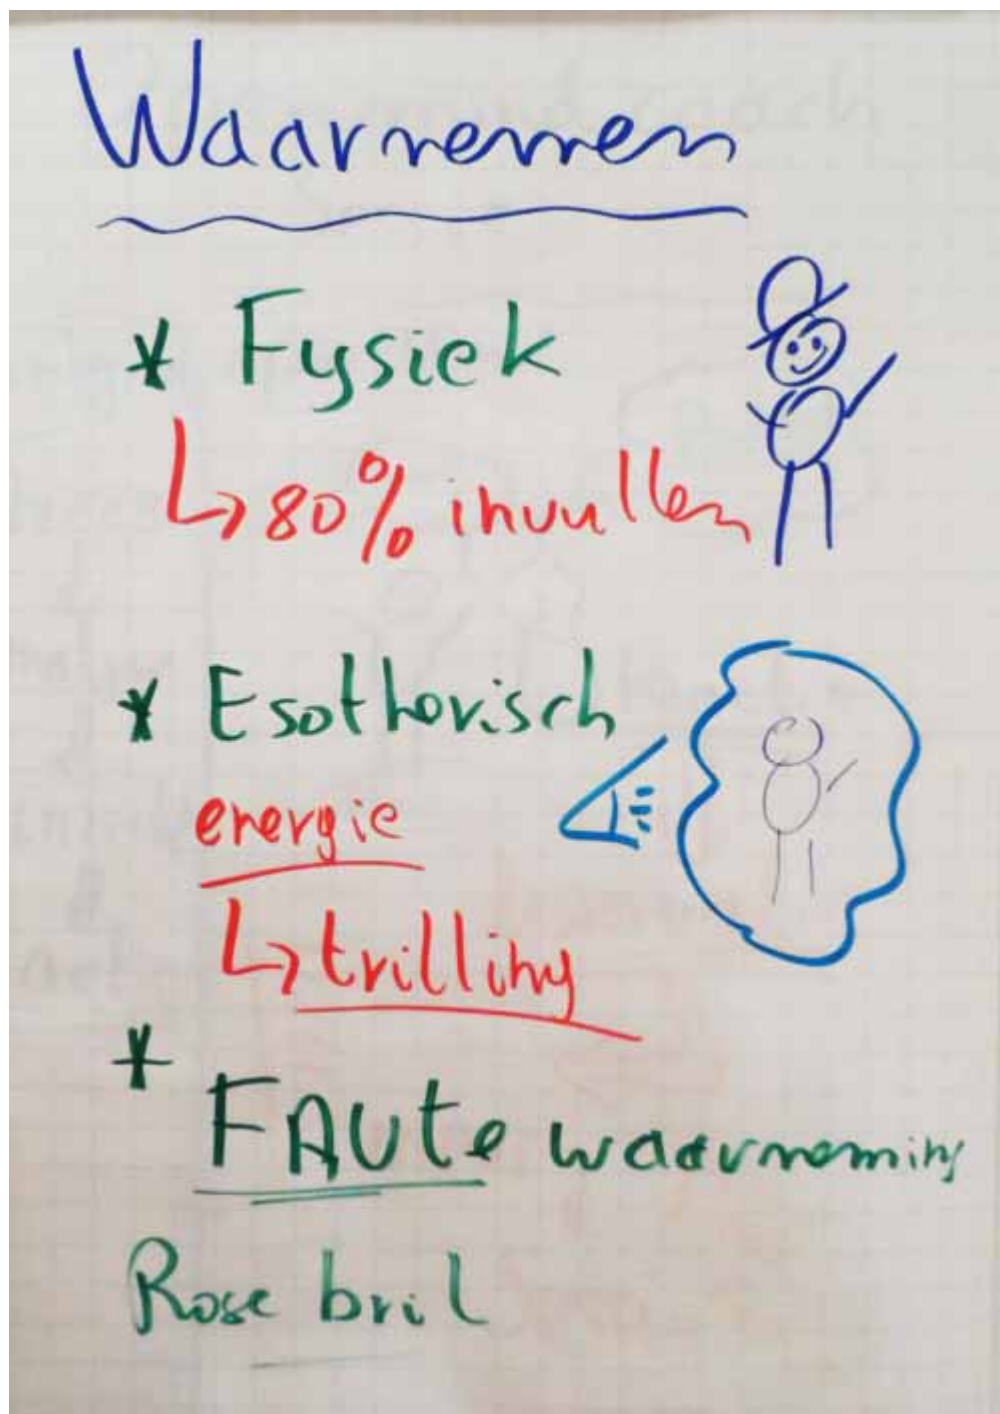 Waarnemen
* Fysiek
↳ 80% invullen
* Esotherisch
energie
↳ trilling
*
FAUte waarneming
Rose bril